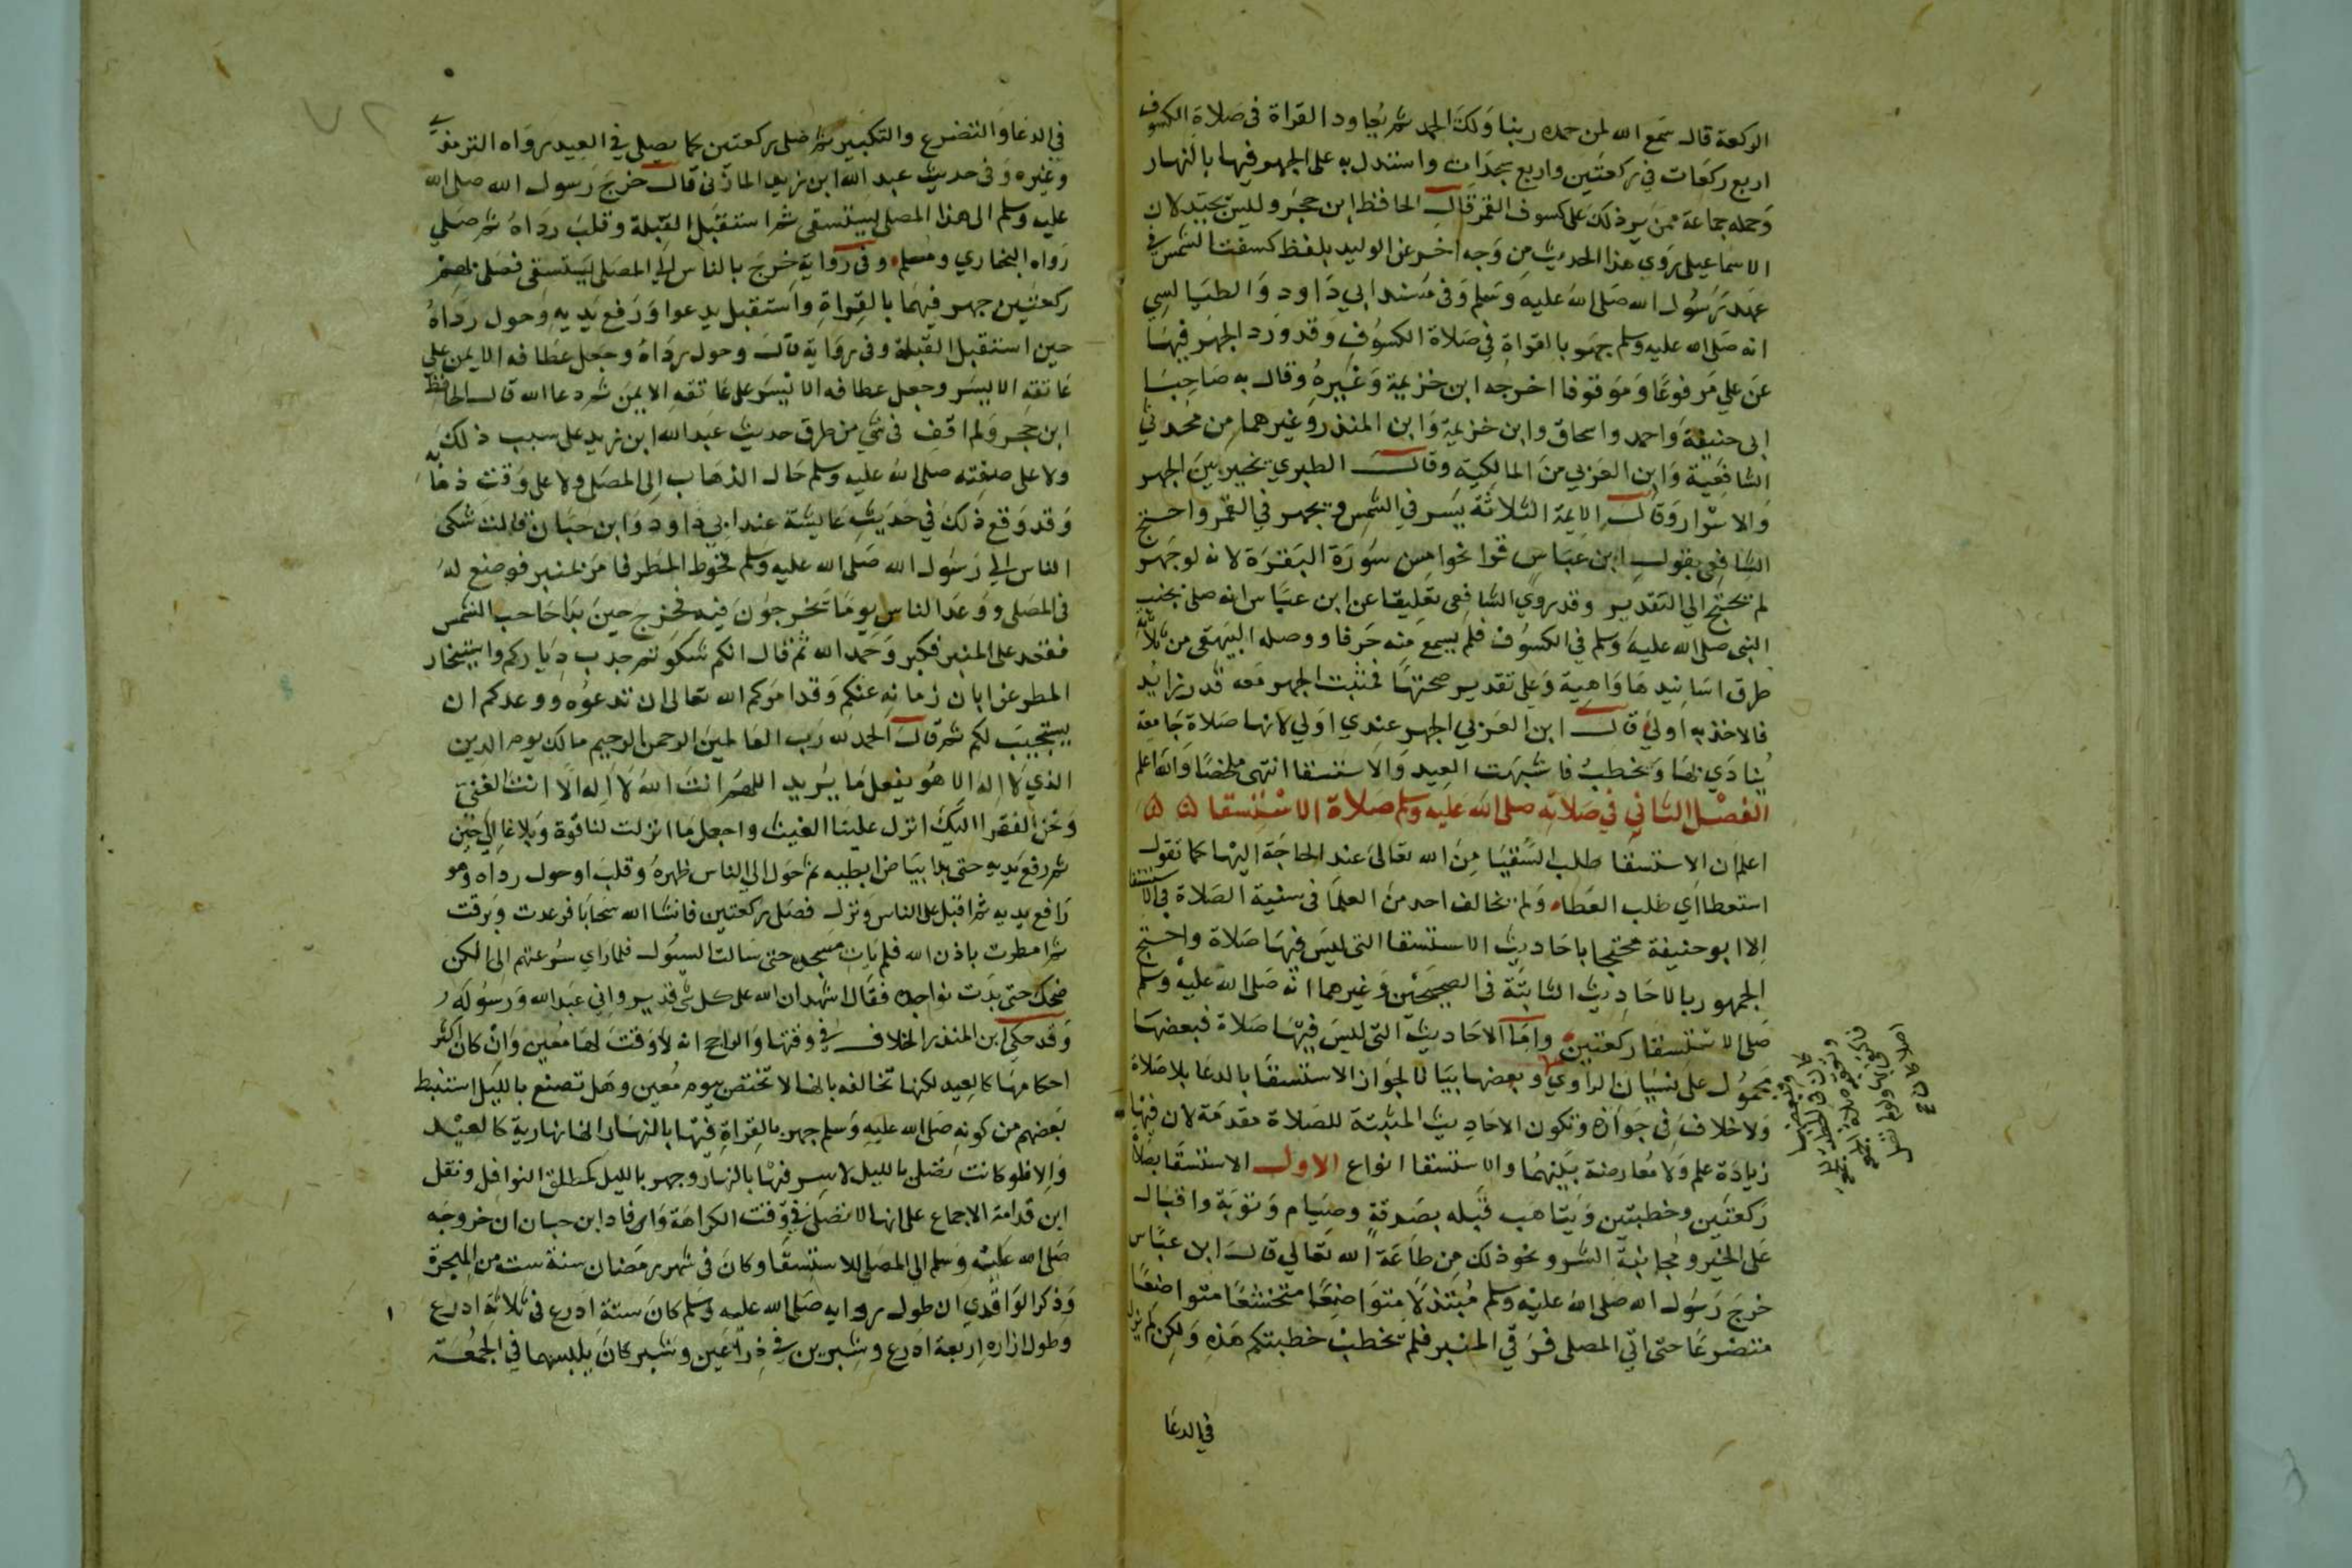 الركعة قال سمع الله لمن حمده ربنا ولك الحمد ثم يعاود القراة في صلاة الكسوف
اربع ركعات في ركعتين واربع سجدات واستدل به على الجهر فيها بالنهار
وحمله جماعة ممن لم ير ذلك على كسوف القمر قال الحافظ ابن حجر وليس بجيد لان
الاسماعيلي روي هذا الحديث من وجه اخر عن الوليد بلفظ كسفت الشمس في
عهد رسول الله صلى الله عليه وسلم وفي مسند ابي داود والطيالسي
انه صلى الله عليه وسلم جهر بالقراة في صلاة الكسوف وقد ورد الجهر فيها
عن علي مرفوعا وموقوفا اخرجه ابن خزيمة وغيره وقال به صاحبا
ابي حنيفة واحمد واسحاق وابن خزيمة وابن المنذر وغيرهما من محدثي
الشافعية وابن العربي من المالكية وقال الطبري يخير بين الجهر
والاسرار وقال الايمة الثلاثة يسر في الشمس ويجهر في القمر واحتج
الشافعي بقول ابن عباس قرا نحوا من سورة البقرة لانه لو جهر
لم يحتج الي التقدير وقد روي الشافعي تعليقا عن ابن عباس انه صلى بجنب
النبي صلى الله عليه وسلم في الكسوف فلم يسمع منه حرفا ووصله البيهقي من ثلاثة
طرق اسانيدها واهية وعلي تقدير صحتها فمثبت الجهر معه قدر زايد
فالاخذ به اولي قال ابن العربي الجهر عندي اولي لانها صلاة جامعة
ينادي لها ويخطب فاشبهت العيد والاستسقا انتهى ملخصا والله اعلم
الفصل الثاني في صلاته صلى الله عليه وسلم صلاة الاستسقا
اعلم ان الاستسقا طلب السقيا من الله تعالى عند الحاجة اليها كما تقول
استعطا اي طلب العطاء ولم يخالف احد من العلما في سنية الصلاة في الاستسقا
الا ابو حنيفة محتجا باحاديث الاستسقا التي ليس فيها صلاة واحتج
الجمهور بالاحاديث الثابتة في الصحيحين وغيرهما انه صلى الله عليه وسلم
صلى الاستسقا ركعتين واما الاحاديث التي ليس فيها صلاة فبعضها
محمول على نسيان الراوي وبعضها بيانا لجواز الاستسقا بالدعا بلا صلاة
ولا خلاف في جوازه وتكون الاحاديث المثبتة للصلاة مقدمة لان فيها
زيادة علم ولا معارضة بينهما والاستسقا انواع الاول الاستسقا بصلاة
ركعتين وخطبتين ويتاهب قبله بصدقة وصيام وتوبة واقبال
على الخير ومجانبة الشر ونحو ذلك من طاعة الله تعالي قال ابن عباس
خرج رسول الله صلى الله عليه وسلم متبذلا متواضعا متخشعا متواضعا
متضرعا حتى اتي المصلى فرقي المنبر فلم يخطب خطبتكم هذه ولكن لم يزل
في الدعا
في الدعا والتضرع والتكبير ثم صلى ركعتين كما يصلى في العيد رواه الترمذي
وغيره وفي حديث عبد الله ابن زيد المازني قال خرج رسول الله صلى الله
عليه وسلم الى هذا المصلى ليستسقى ثم استقبل القبلة وقلب رداه ثم صلي
رواه البخاري ومسلم وفي رواية خرج بالناس الي المصلى ليستسقى فصلى بهم
ركعتين جهر فيهما بالقراة واستقبل يدعوا ورفع يديه وحول رداه
حين استقبل القبلة وفي رواية قال وحول رداه وجعل عطافه الايمن علي
عاتقه الايسر وجعل عطافه الايسر على عاتقه الايمن ثم دعا الله قال الحافظ
ابن حجر ولم اقف في شي من طرق حديث عبد الله ابن زيد على سبب ذلك
ولا على صفته صلى الله عليه وسلم حال الذهاب الى المصلى ولا على وقت ذهابه
وقد وقع ذلك في حديث عايشة عند ابي داود وابن حبان قالت شكى
الناس الي رسول الله صلى الله عليه وسلم قحوط المطر فامر بمنبر فوضع له
في المصلى ووعد الناس يوما يخرجون فيه فخرج حين بدا حاجب الشمس
فقعد على المنبر فكبر وحمد الله ثم قال انكم شكوتم جدب دياركم واستيخار
المطر عن ابان زمانه عنكم وقد امركم الله تعالى ان تدعوه ووعدكم ان
يستجيب لكم ثم قال الحمد لله رب العالمين الرحمن الرحيم مالك يوم الدين
الذي لا اله الا هو يفعل ما يريد اللهم انت الله لا اله الا انت الغني
ونحن الفقرا اليك انزل علينا الغيث واجعل ما انزلت لنا قوة وبلاغا الي حين
ثم رفع يديه حتى بدا بياض ابطيه ثم حول الي الناس ظهره وقلب او حول رداه وهو
رافع يديه ثم اقبل على الناس ونزل فصلى ركعتين فانشا الله سحابا فرعدت وبرقت
ثم امطرت باذن الله فلم يات مسجده حتى سالت السيول فلما راي سرعتهم الى الكن
ضحك حتى بدت نواجده فقال اشهد ان الله على كل شي قدير واني عبد الله ورسوله
وقد حكى ابن المنذر الخلاف في وقتها والراجح انه لا وقت لها معين وان كان اكثر
احكامها كالعيد لكنها تخالفه بانها لا تختص بيوم معين وهل تصنع بالليل استنبط
بعضهم من كونه صلى الله عليه وسلم جهر بالقراة فيها بالنهار انها نهارية كالعيد
والا فلو كانت تصلى بالليل لاسر فيها بالنهار وجهر بالليل كمطلق النوافل ونقل
ابن قدامة الاجماع على انها لا تصلى في وقت الكراهة وافاد ابن حبان ان خروجه
صلى الله عليه وسلم الى المصلى للاستسقا وكان في شهر رمضان سنة ست من الهجرة
وذكر الواقدي ان طول ردايه صلى الله عليه وسلم كان ستة اذرع في ثلاثة اذرع
وطول ازاره اربعة اذرع وشبرين في ذراعين وشبر كان يلبسهما في الجمعة